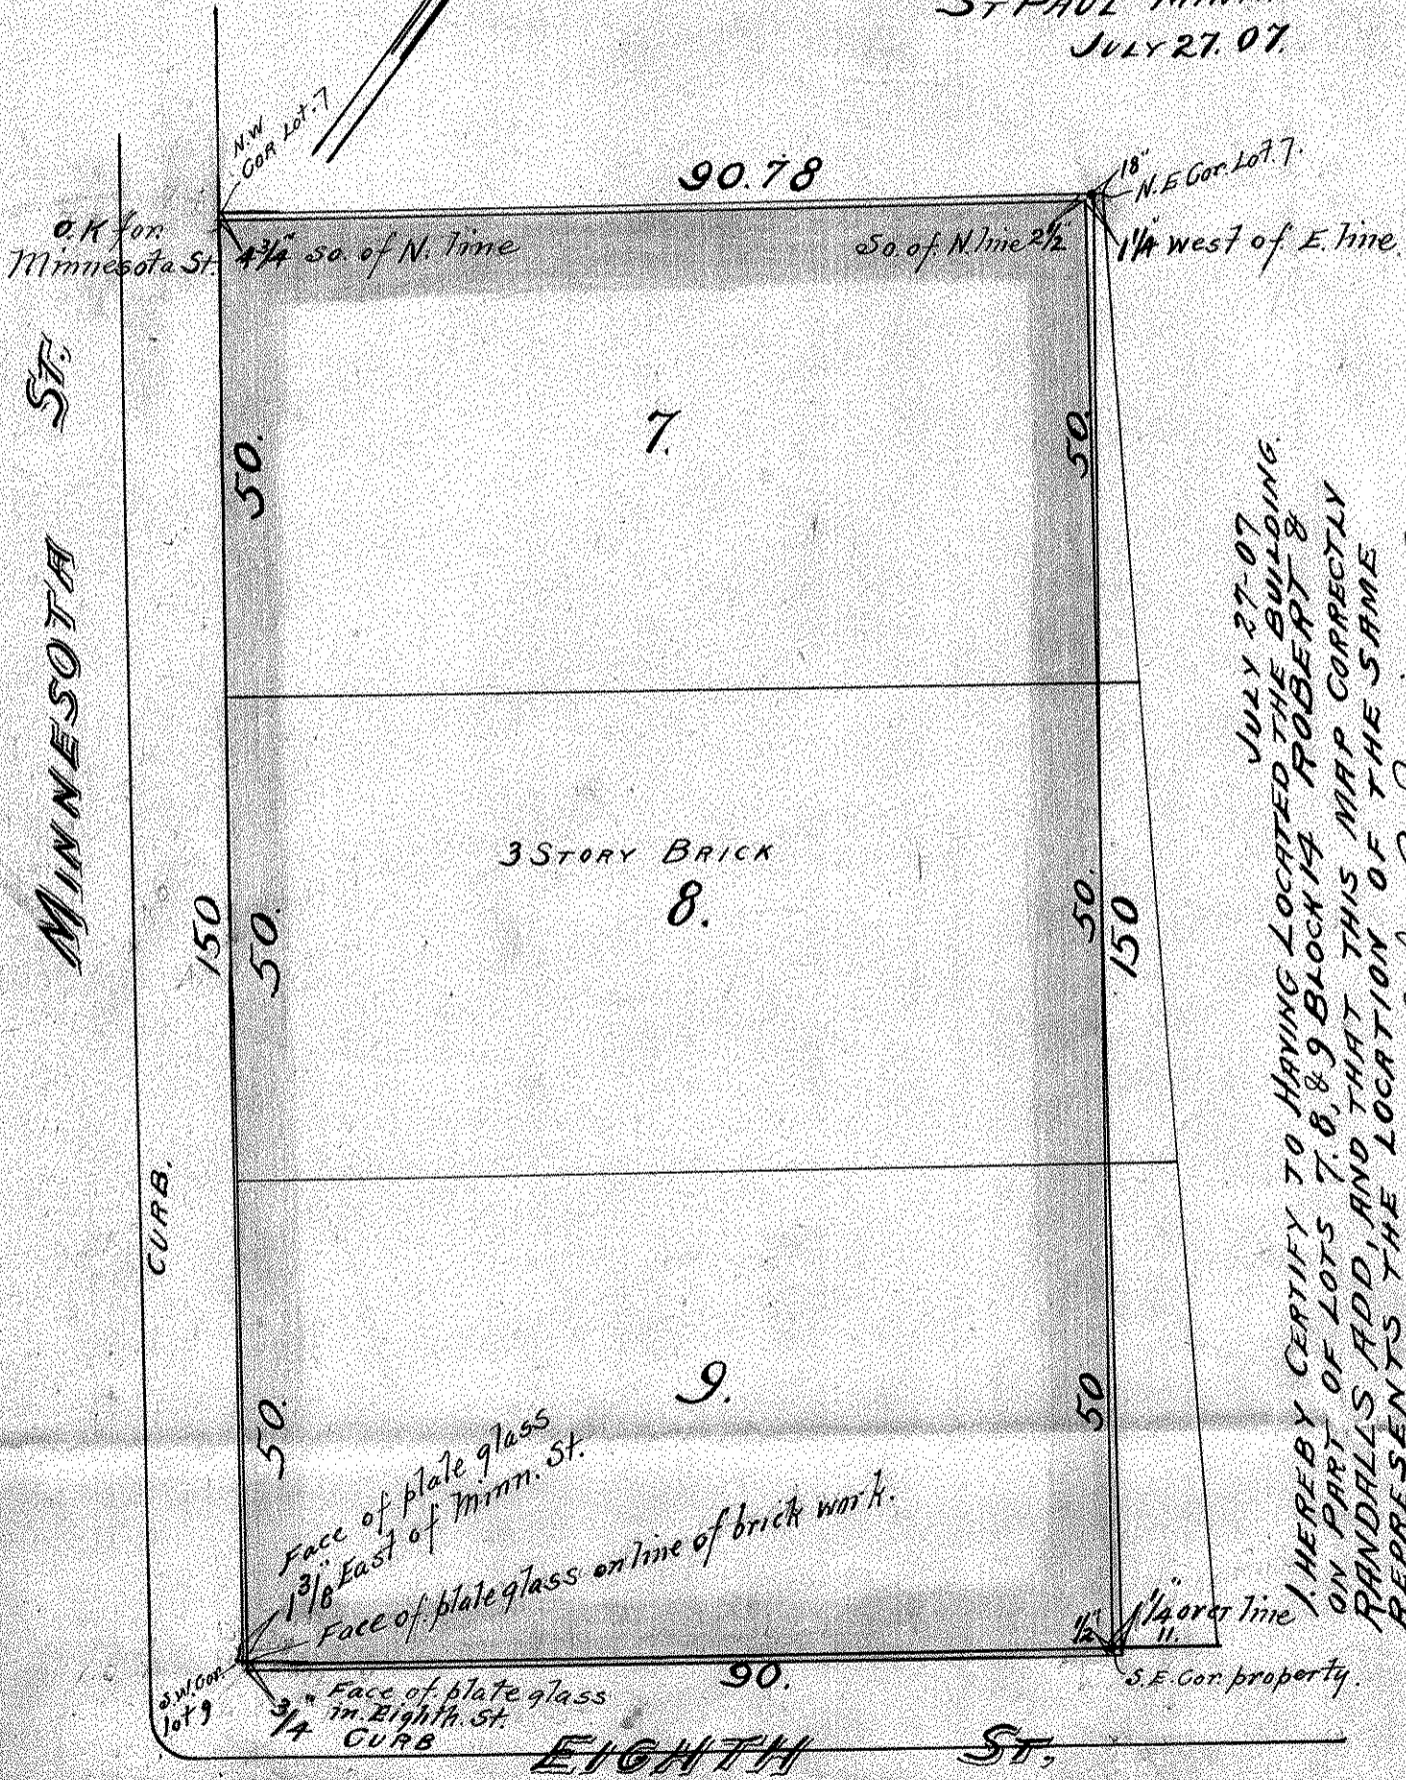 ST PAUL MINN.
JULY 27. 07.
N.W
COR Lot. 7
90.78
18"
N.E Cor. Lot. 7.
O.K for
Minnesota St.
4 3/4" So. of N. line
So. of N. line 2 1/2"
1 1/4" west of E. line.
7.
50.
50.
MINNESOTA ST.
3 STORY BRICK
8.
150
50.
50.
150
CURB.
9.
50.
50
Face of plate glass
1 3/8" East of Minn. St.
Face of plate glass on line of brick work.
1/2"
1 1/4" over line
11.
S.W. Cor
lot 9
3/4" Face of plate glass
in Eighth St.
CURB
90.
S.E. Cor. property.
EIGHTH ST.
JULY 27-07
I HEREBY CERTIFY TO HAVING LOCATED THE BUILDING.
ON PART OF LOTS 7. 8, & 9 BLOCK 14 ROBERT &
RANDALLS ADD, AND THAT THIS MAP CORRECTLY
REPRESENTS THE LOCATION OF THE SAME